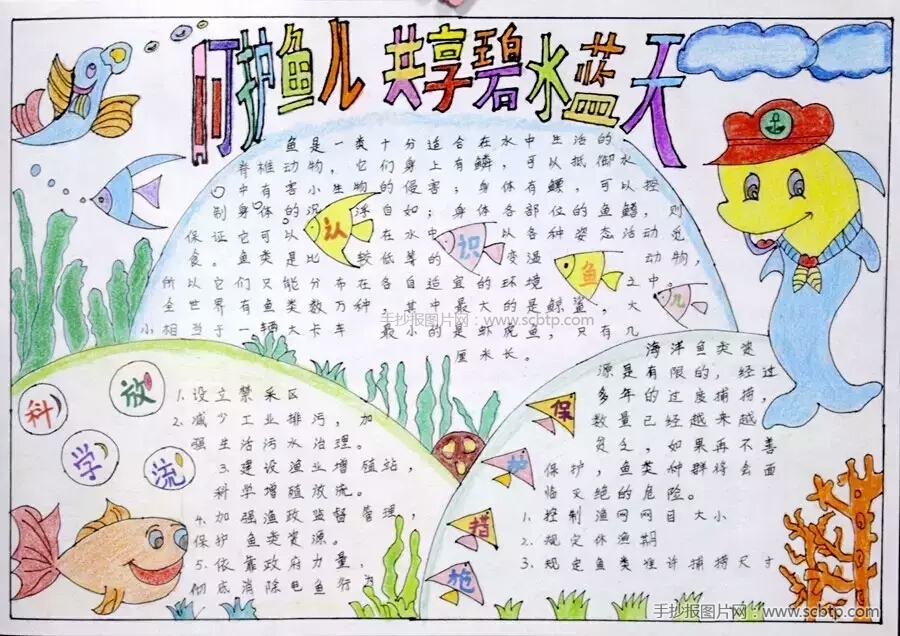 呵护鱼儿 共享碧水蓝天
鱼是一类十分适合在水中生活的
脊椎动物，它们身上有鳞，可以抵御水
中有害小生物的侵害；身体有鳔，可以控
制身体的沉浮自如；身体各部位的鱼鳍，则
保证它可以在水中以各种姿态活动觅
食。鱼类是比较低等的变温动物，
所以它们只能分布在各自适宜的环境之中。
全世界有鱼类数万种，其中最大的是鲸鲨，大
小相当于一辆大卡车，最小的是虾虎鱼，只有几
厘米长。
认识鱼儿
手抄报图片网：www.scbtp.com
科学放流
1.设立禁采区
2.减少工业排污，加
强生活污水治理。
3.建设渔业增殖站，
科学增殖放流。
4.加强渔政监督管理，
保护鱼类资源。
5.依靠政府力量，
彻底消除电鱼行
保护措施
海洋鱼类资
源是有限的，经过
多年的过度捕捞，
数量已经越来越
贫乏，如果再不善
保护，鱼类种群将会面
临灭绝的危险。
1.控制渔网网目大小
2.规定休渔期
3.规定鱼类准许捕捞尺寸
手抄报图片网：www.scbtp.com